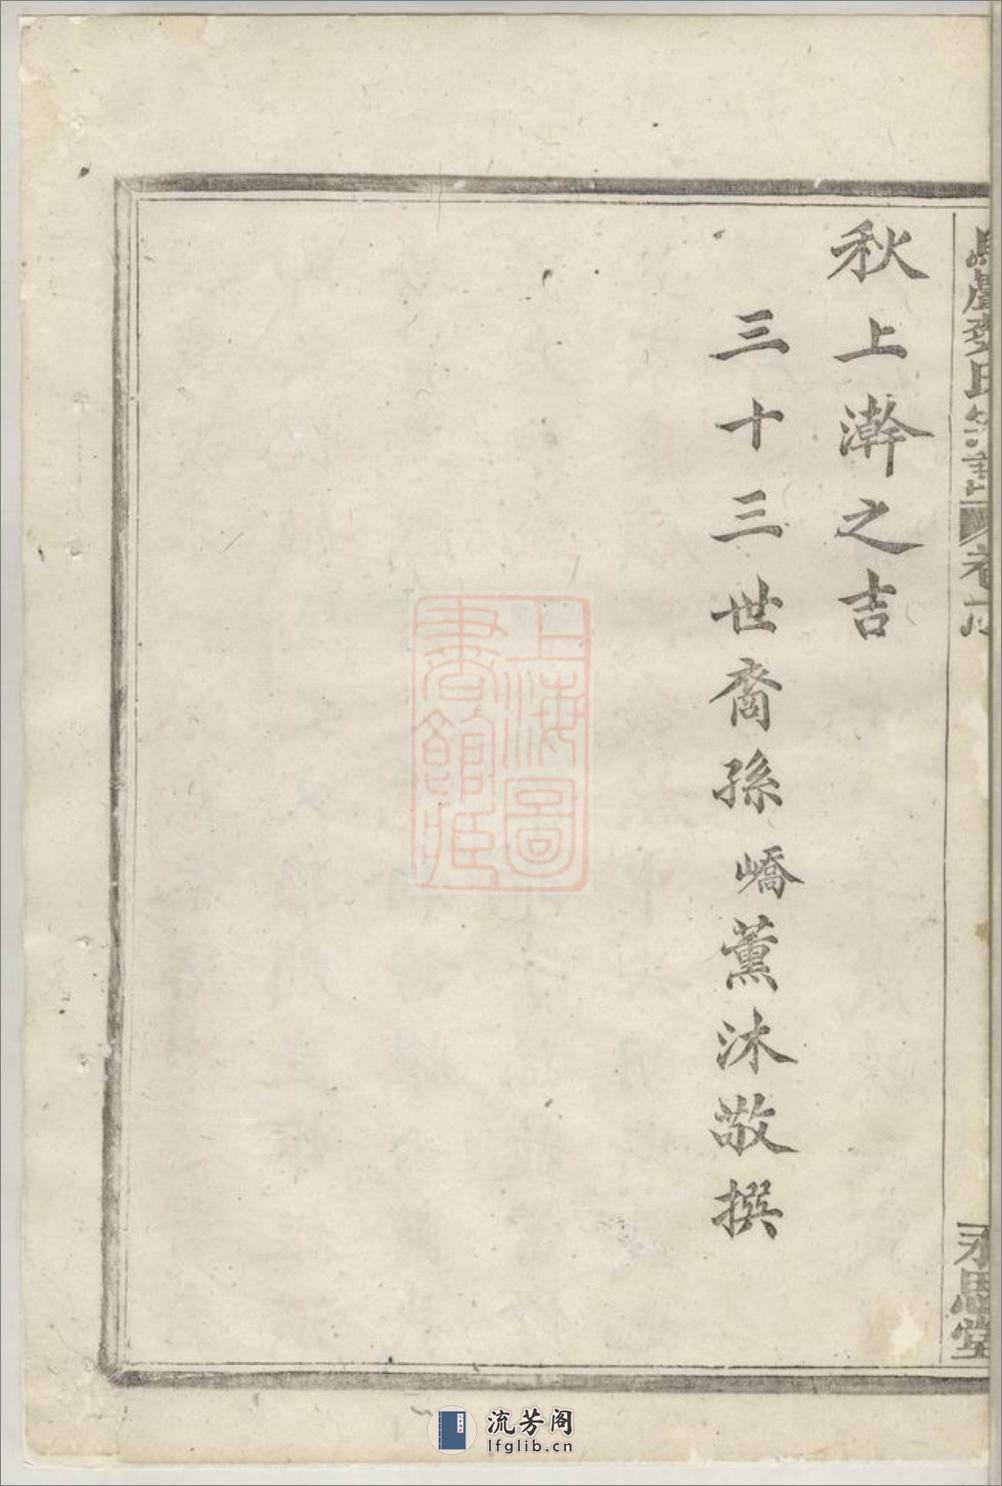 秋上澣之吉
三十三世裔孫嶠薰沐敬撰
氏
卷
永思堂
上海圖
書館藏
流芳阁
lfglib.cn